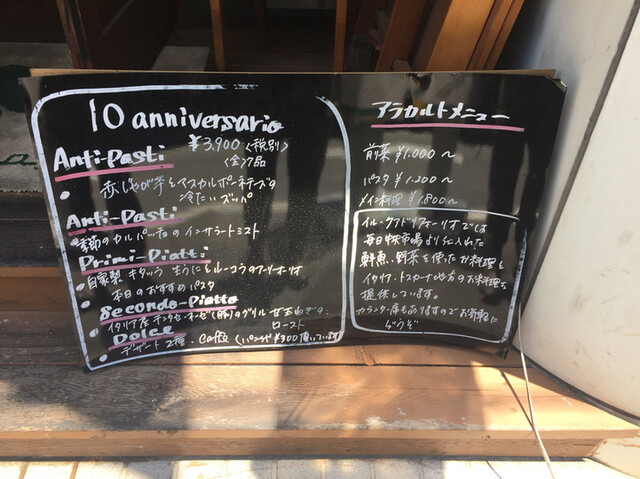 10 anniversario
¥3,900〈税別〉
〈全〉7品
Anti-Pasti
・赤じゃが芋とマスカルポーネチーズの
冷たいズッパ
Anti-Pasti
・季節のカルパッチョのインサラートミスト
Primi-Piatti
・自家製 キタッラ 生うにとルーコラのアーリオ・オーリオ
本日のおすすめパスタ
Secondo-Piatto
・イタリア産 (豚)のグリル 甘玉ねぎの
ロースト
Dolce
・デザート2種・Caffè (パンが¥300頂いています
アラカルトメニュー
前菜 ¥1.000〜
パスタ ¥1.200〜
メイン料理 ¥1.800〜
イル・クアドリフォーリオでは
毎日中央市場より仕入れた
鮮魚、野菜を使ったお料理と
イタリア・トスカーナ地方のお料理を
提供しています。
カウンター席もありますのでお気軽に
どうぞ